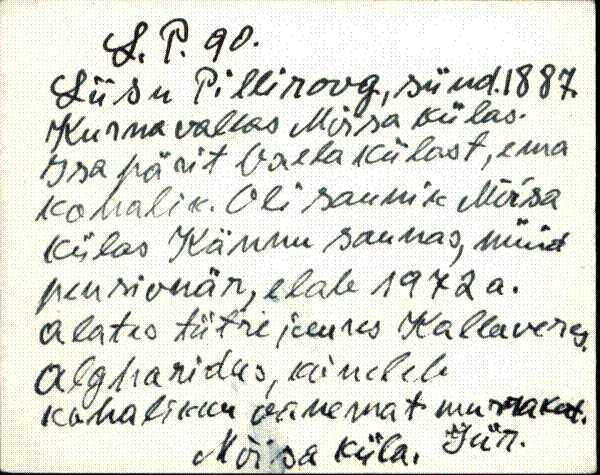 L. P. 90.
Liisu Pilliroog, sünd. 1887.
Kurna vallas Mõisa külas.
Isa pärit Vaela külast, ema
kohalik. Oli saunik Mõisa
külas Kännu saunas, nüüd
pensionär, elab 1972 a.
alates tütre juures Kallaveres.
Algharidus, kõneleb
kohalikku vanemat murrakut.
Mõisa küla. Jür.